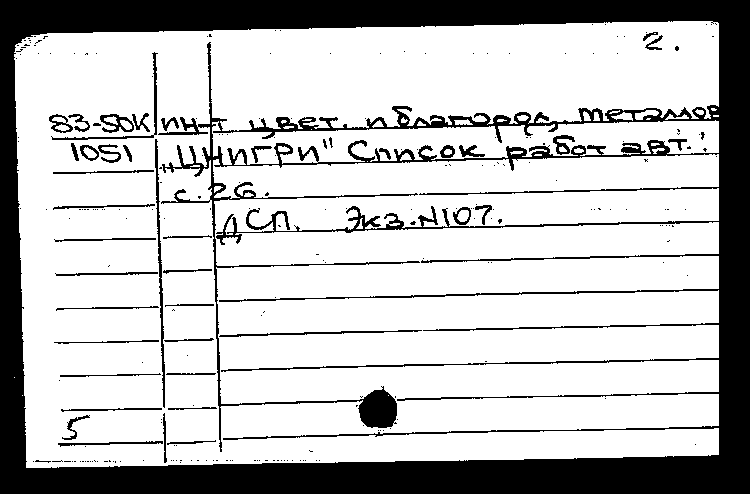 2.
83-50К ин-т цвет. и благород, металлов
1051 „ЦНИГРИ" Список работ авт.:
с. 26.
ДСП. Экз.N107.
5